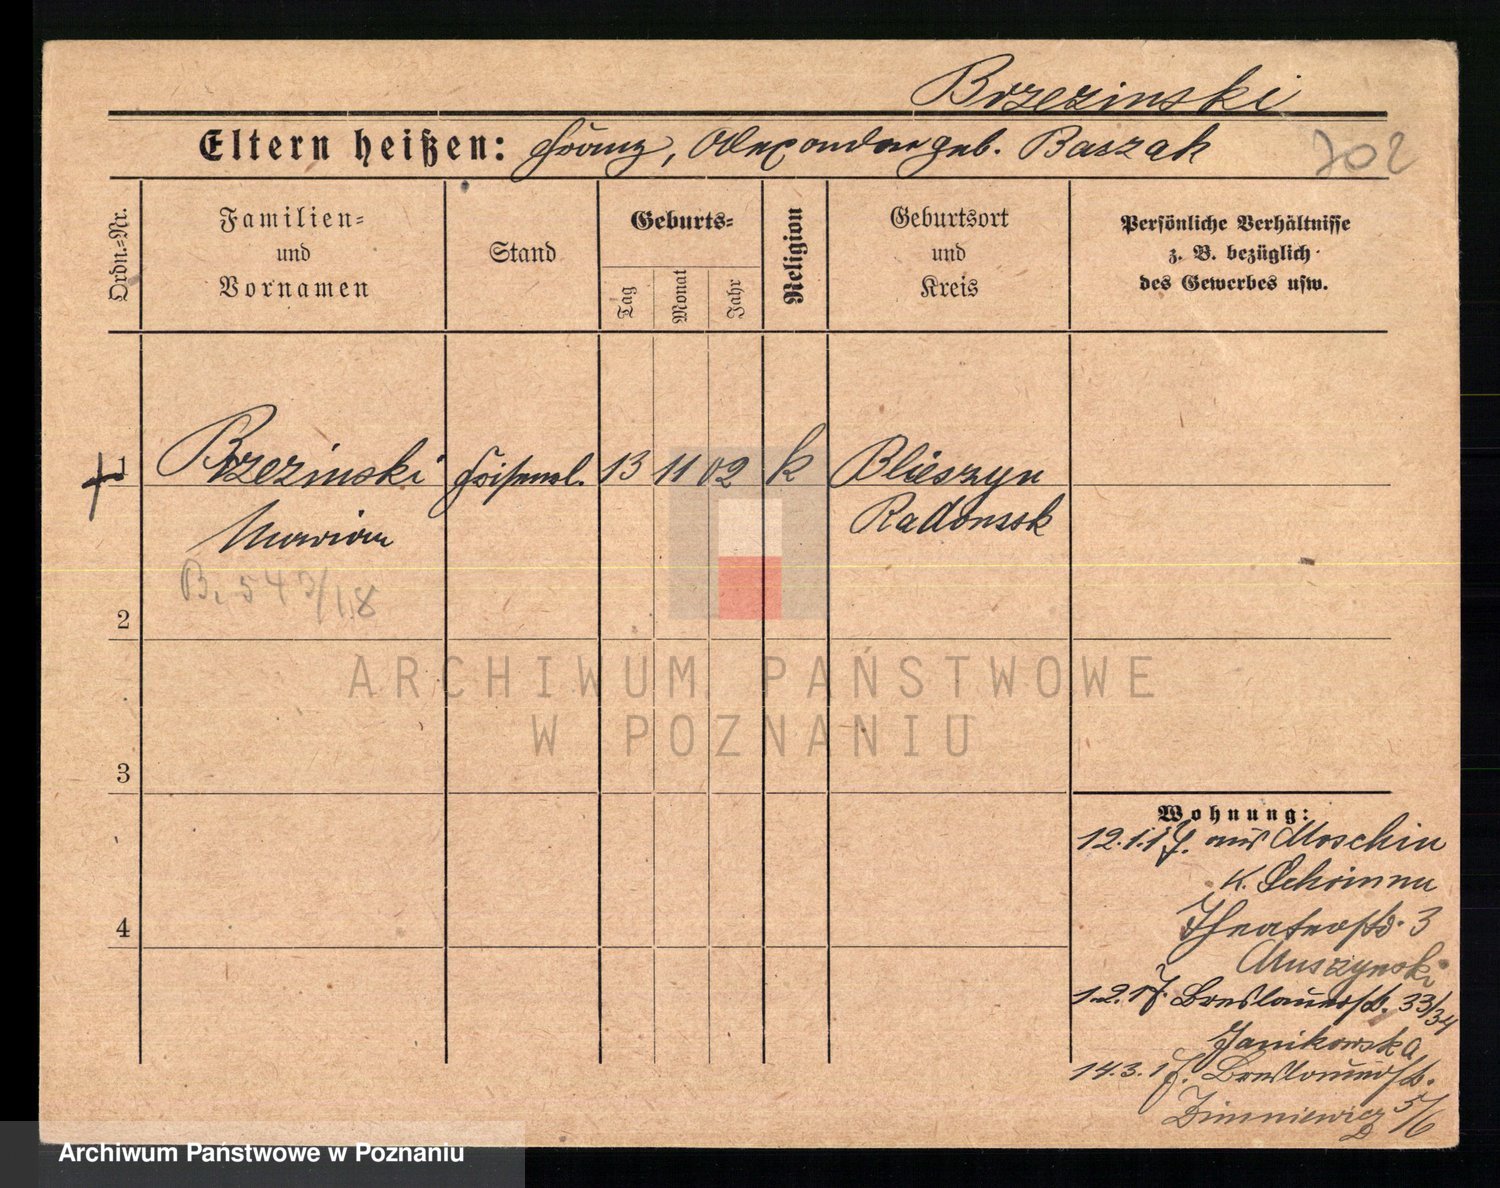 Brzezinski
Eltern heißen: Franz, Alexandra geb. Baszak
702
Ordn.=Nr.
Familien=
und
Vornamen
Stand
Geburts=
Tag
Monat
Jahr
Religion
Geburtsort
und
Kreis
Persönliche Verhältnisse
z. B. bezüglich
des Gewerbes usw.
1 Brzezinski Friseurl. 13 11 02 k Blieszyn
Maryan Radomsok
B. 543/18
2
ARCHIWUM PAŃSTWOWE
W POZNANIU
3
4
Wohnung:
12.1.17. aus Moschin
K. Schrimm
Theaterstr. 3
Muszynski
1.2.17. Breslauerstr. 33/34
Janikowska
14.3.17. Breslauerstr.
Zimniewicz 5/6
Archiwum Państwowe w Poznaniu